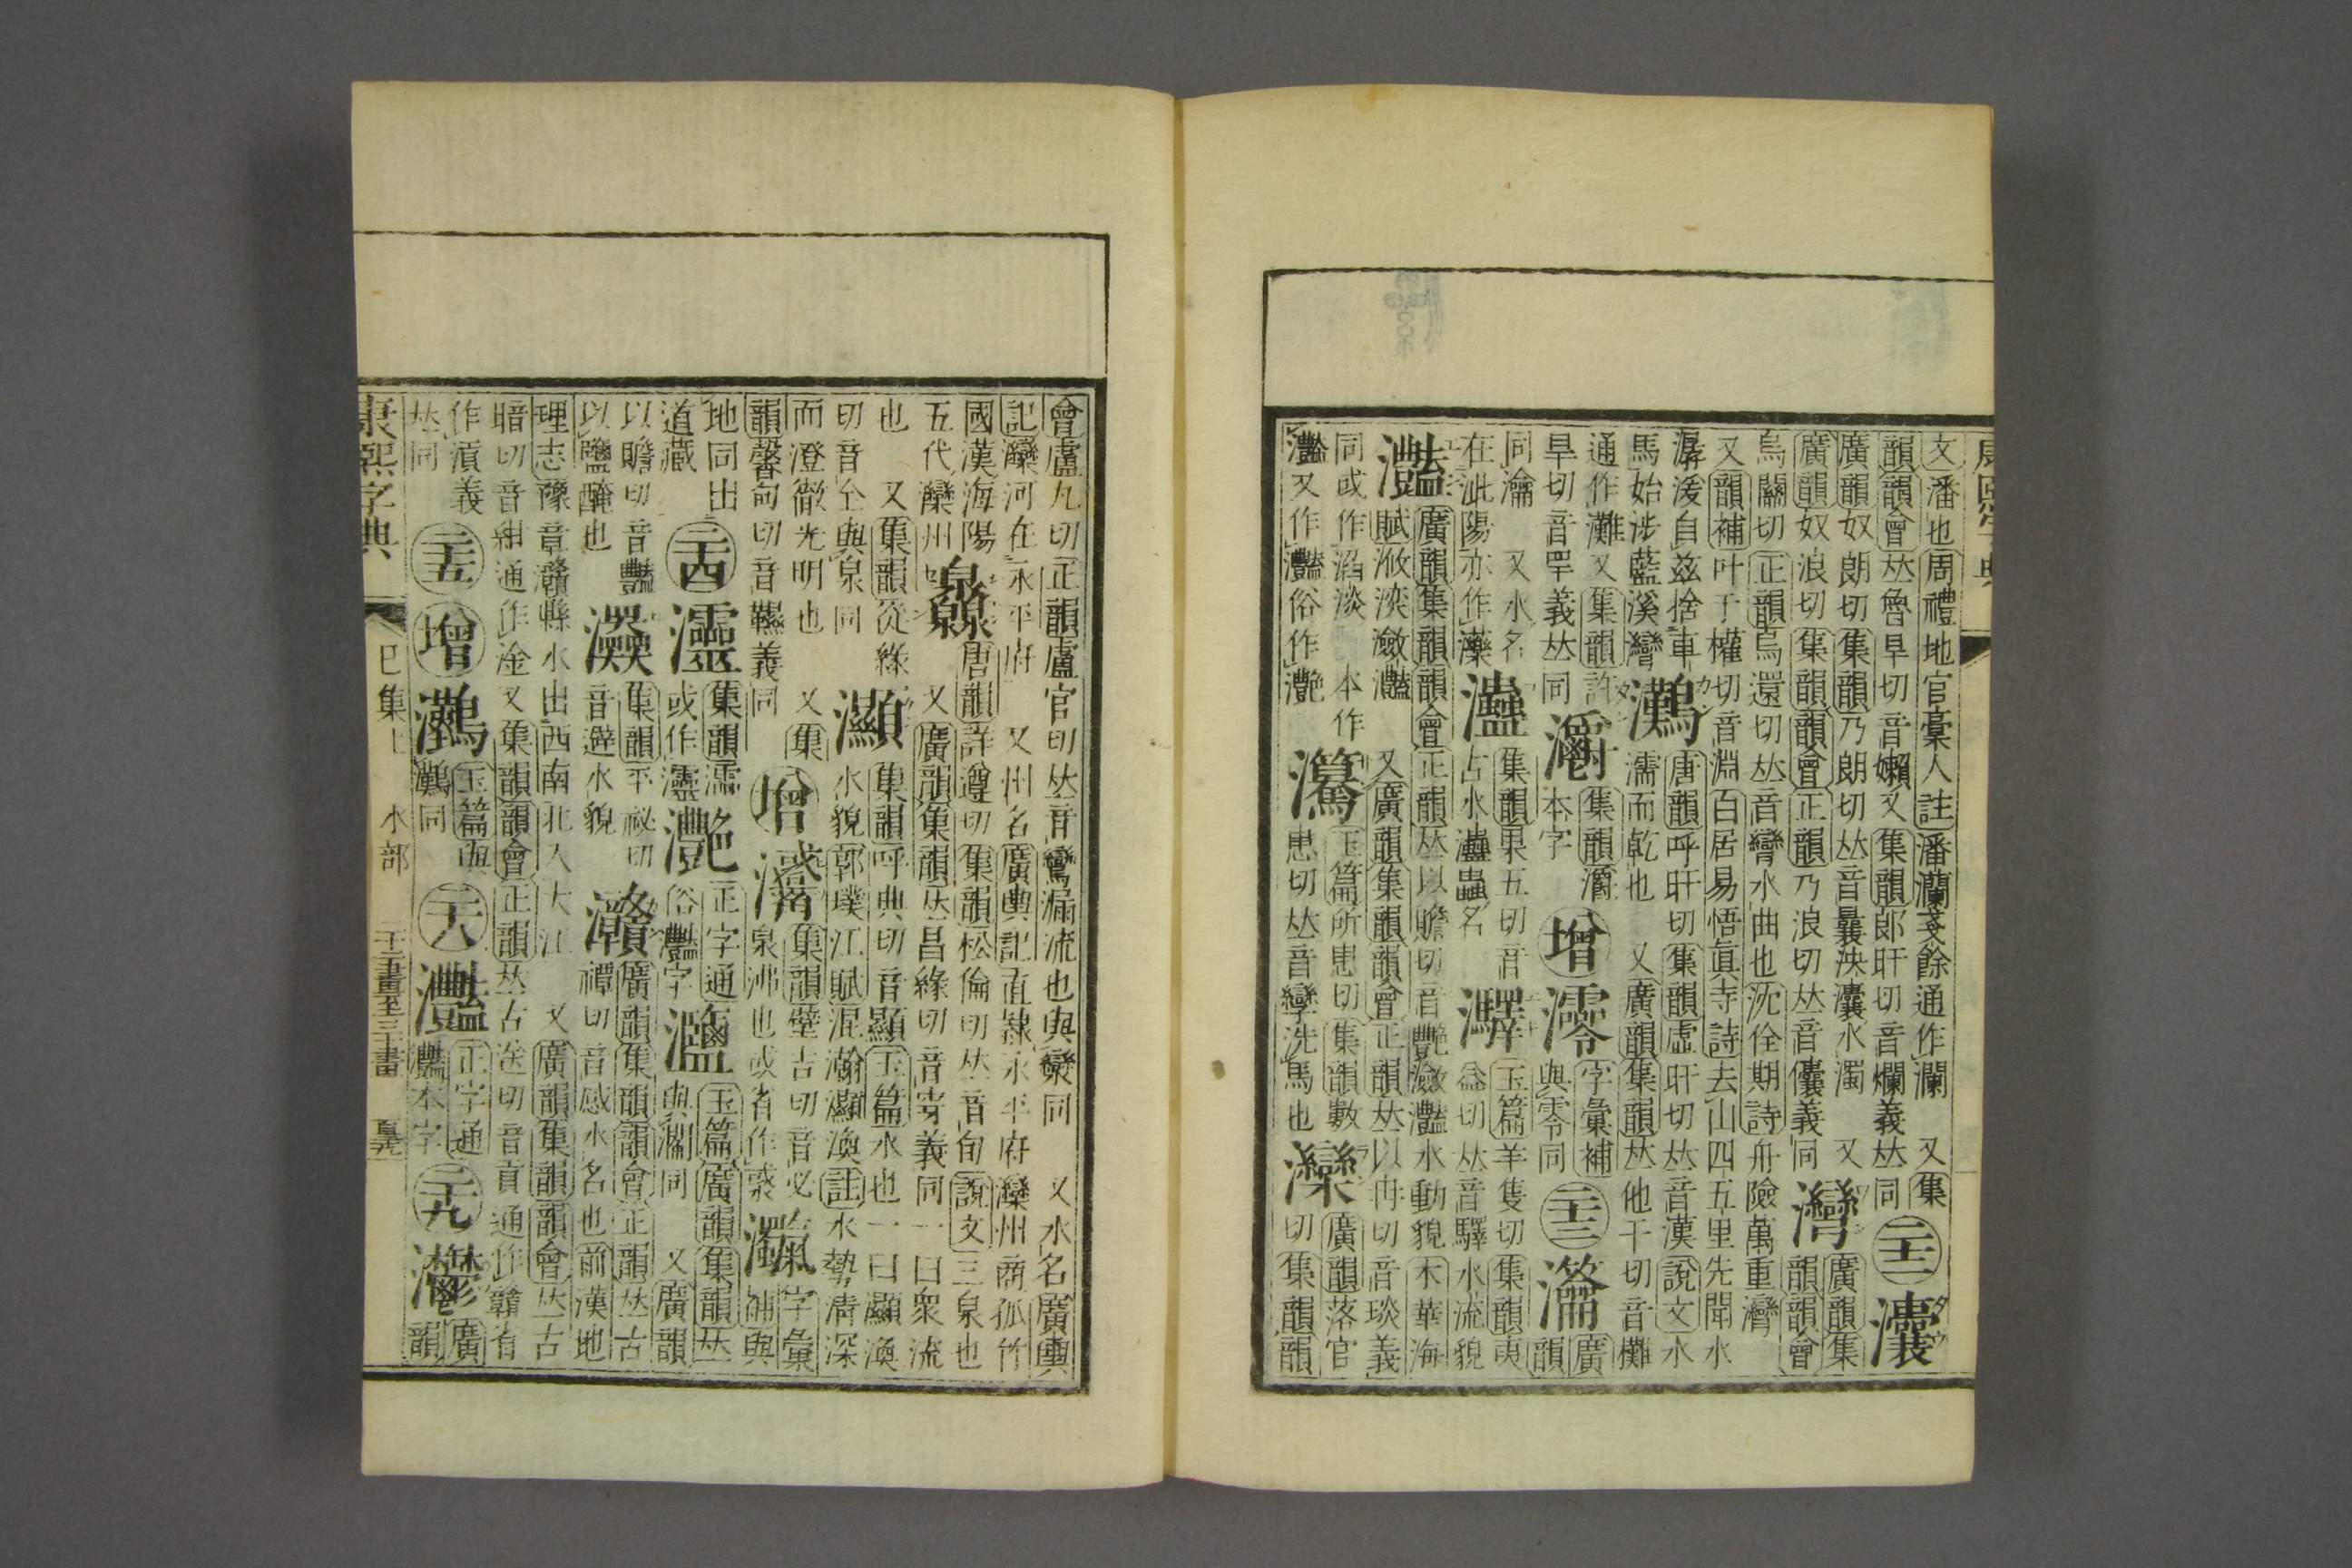 文潘也周禮地官槀人註潘瀾戔餘通作瀾　又集
韻韻會𠀤魯旱切音嬾又集韻郎旰切音爛義𠀤同
二十二
灢
廣韻奴朗切集韻乃朗切𠀤音曩泱灢水濁　又
廣韻奴浪切集韻韻會正韻乃浪切𠀤音儾義同
灣
廣韻集
韻韻會
烏關切正韻烏還切𠀤音彎水曲也沇佺期詩舟險萬重灣
又韻補叶于權切音淵白居易悟眞寺詩去山四五里先聞水
潺湲自兹捨車馬始涉藍溪灣
灘
唐韻呼旰切集韻虛旰切𠀤音漢說文水
濡而乾也　又廣韻集韻𠀤他干切音攤
通作灘又集韻許
旱切音罕義𠀤同
灂
集韻灂
本字
增
澪
字彙補
與零同
二十三
灊
廣
韻
同瀹　又水名
在泚陽亦作藥
蠱
集韻果五切音
占水蠱蟲名
驛
玉篇羊隻切集韻夷
益切𠀤音驛水流貌
灩
廣韻集韻韻會正韻𠀤以贍切音豔瀲灩水動貌木華海
賦浟湙瀲灩　又廣韻集韻韻會正韻𠀤以冉切音琰義
同或作滔淡　本作
灩又作灩俗作灧
玉篇所患切集韻數
患切𠀤音孿洗馬也
灤
廣韻落官
切集韻韻
會盧丸切正韻盧官切𠀤音鸞漏流也與欒同　又水名廣輿
記灤河在永平府　又州名廣輿記直隸永平府灤州商孤竹
國漢海陽
五代灤州
灥
唐韻詳遵切集韻松倫切𠀤音旬說文三泉也
又廣韻集韻𠀤昌緣切音穿義同一曰衆流
也　又集韻從緣
切音全與泉同
灦
集韻呼典切音顯玉篇水也一曰灦渙
水貌郭璞江賦混瀚灦渙註水勢淸深
而澄徹光明也　又集
韻馨甸切音韅義同
增
集韻壁吉切音必
泉沸也或省作
字彙
補與
地同出
道藏
二十四
灵
集韻濡
或作灵
灧
正字通
俗灩字
玉篇廣韻集韻𠀤
與澗同　又廣韻
以贍切音豔
以鹽醃也
集韻平祕切
音避水貌
灨
廣韻集韻韻會正韻𠀤古
禫切音感水名也前漢地
理志豫章灨縣水出西南北入大江　又廣韻集韻韻會𠀤古
暗切音紺通作淦又集韻韻會正韻𠀤古送切音貢通作贛有
作湏義
𠀤同
二十五
增
灘
玉篇與
同
二十八
灩
正字通
灩本字
二十九
灪
廣
韻
康熙字典
巳集上　水部